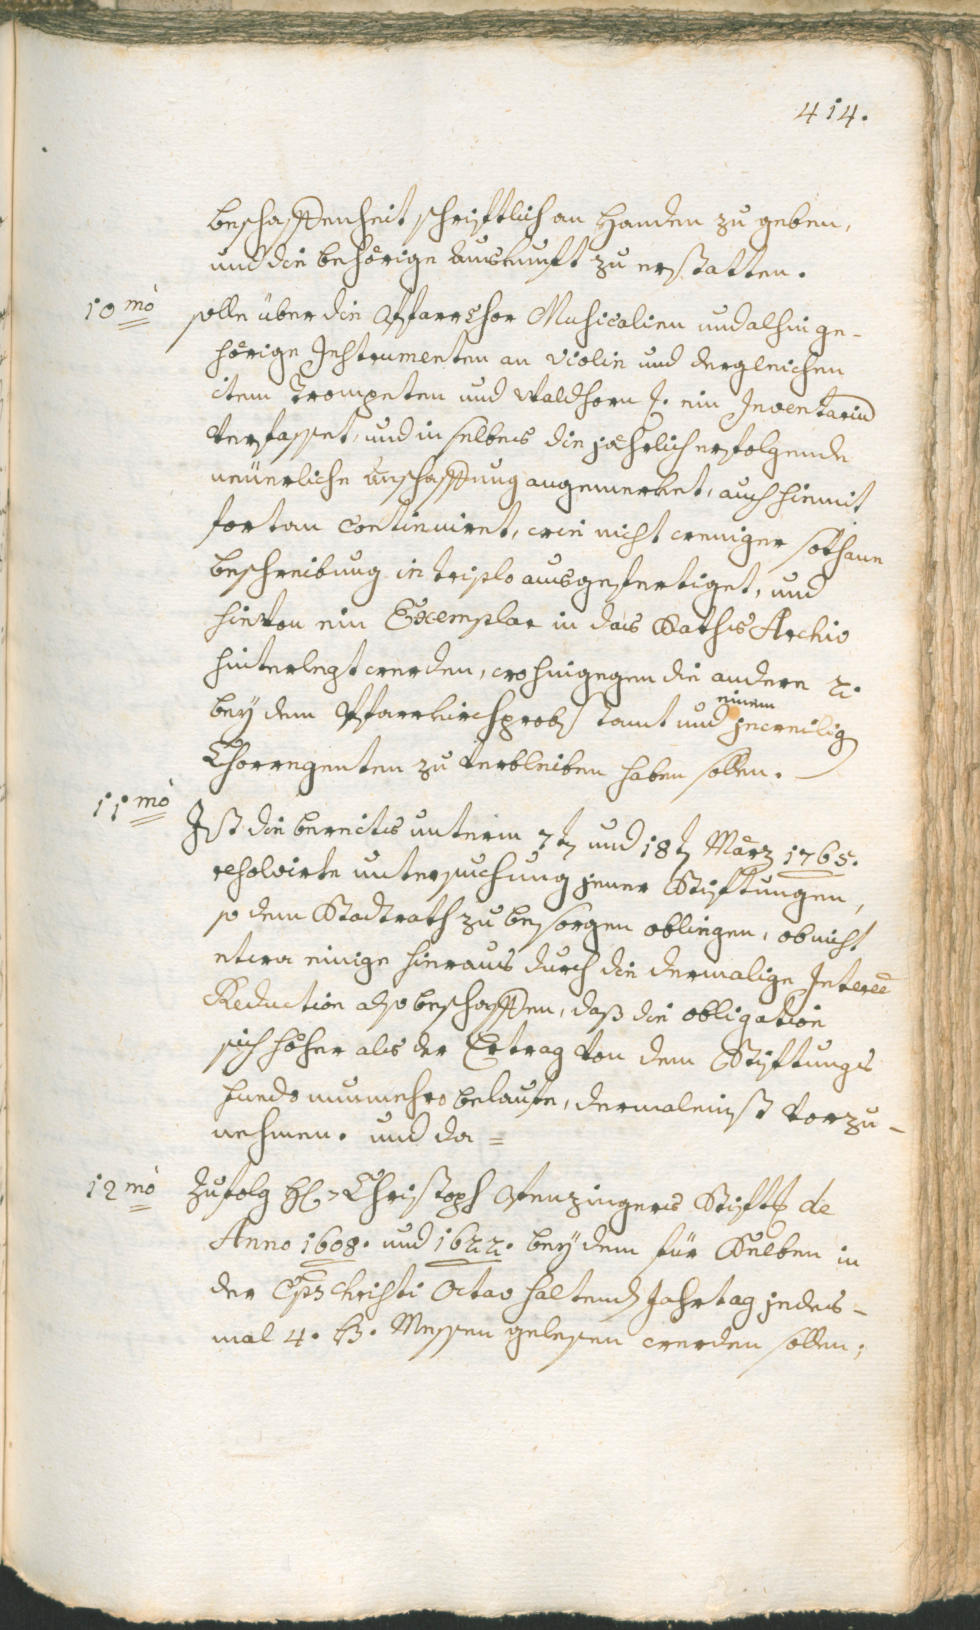 414.
beschaffenheit schrifftlich an Handen zu geben,
und die behörige auskunft zu erstatten.
10mò solle über die Pfarr Chor Musicalien und alhin ge-
hörige Instrumenten an Violin und dergleichen
item Trompeten und Waldhorn ein Inventariū
verfasset, und in selbes die jährlich erfolgende
neüerliche anschaffung angemerket, auch hiemit
fortan continuiret, wie nicht weniger sothane
beschreibung in triplo ausgefertiget, und
hievon ein Exemplar in das Raths Archiv
hinterlegt werden, wohingegen die andere 2.
einem
bey dem Pfarrkirchprobstamt und jeweilig
Chorregenten zu verbleiben haben sollen.
11mò Ist die bereits unterm 7t und 18t März 1765.
resolvirte untersuchung jener Stifftungen,
so dem Stadtrath zu besorgen obligen, ob nicht
etwa einige hieraus durch die dermalige Interee
Reduction also beschaffen, daß die obligation
sich höher als der Ertrag von dem Stifftungs
fundo nunmehro belaufe, dermaleinst vorzu-
nehmen. und da =
12mò Zufolg H: Christoph Penzingers Stiffts de
Anno 1608. und 1622. bey dem für Selben in
der Cps Christi Octav haltend Jahrtag jedes-
mal 4. h. Messen gelesen werden sollen;